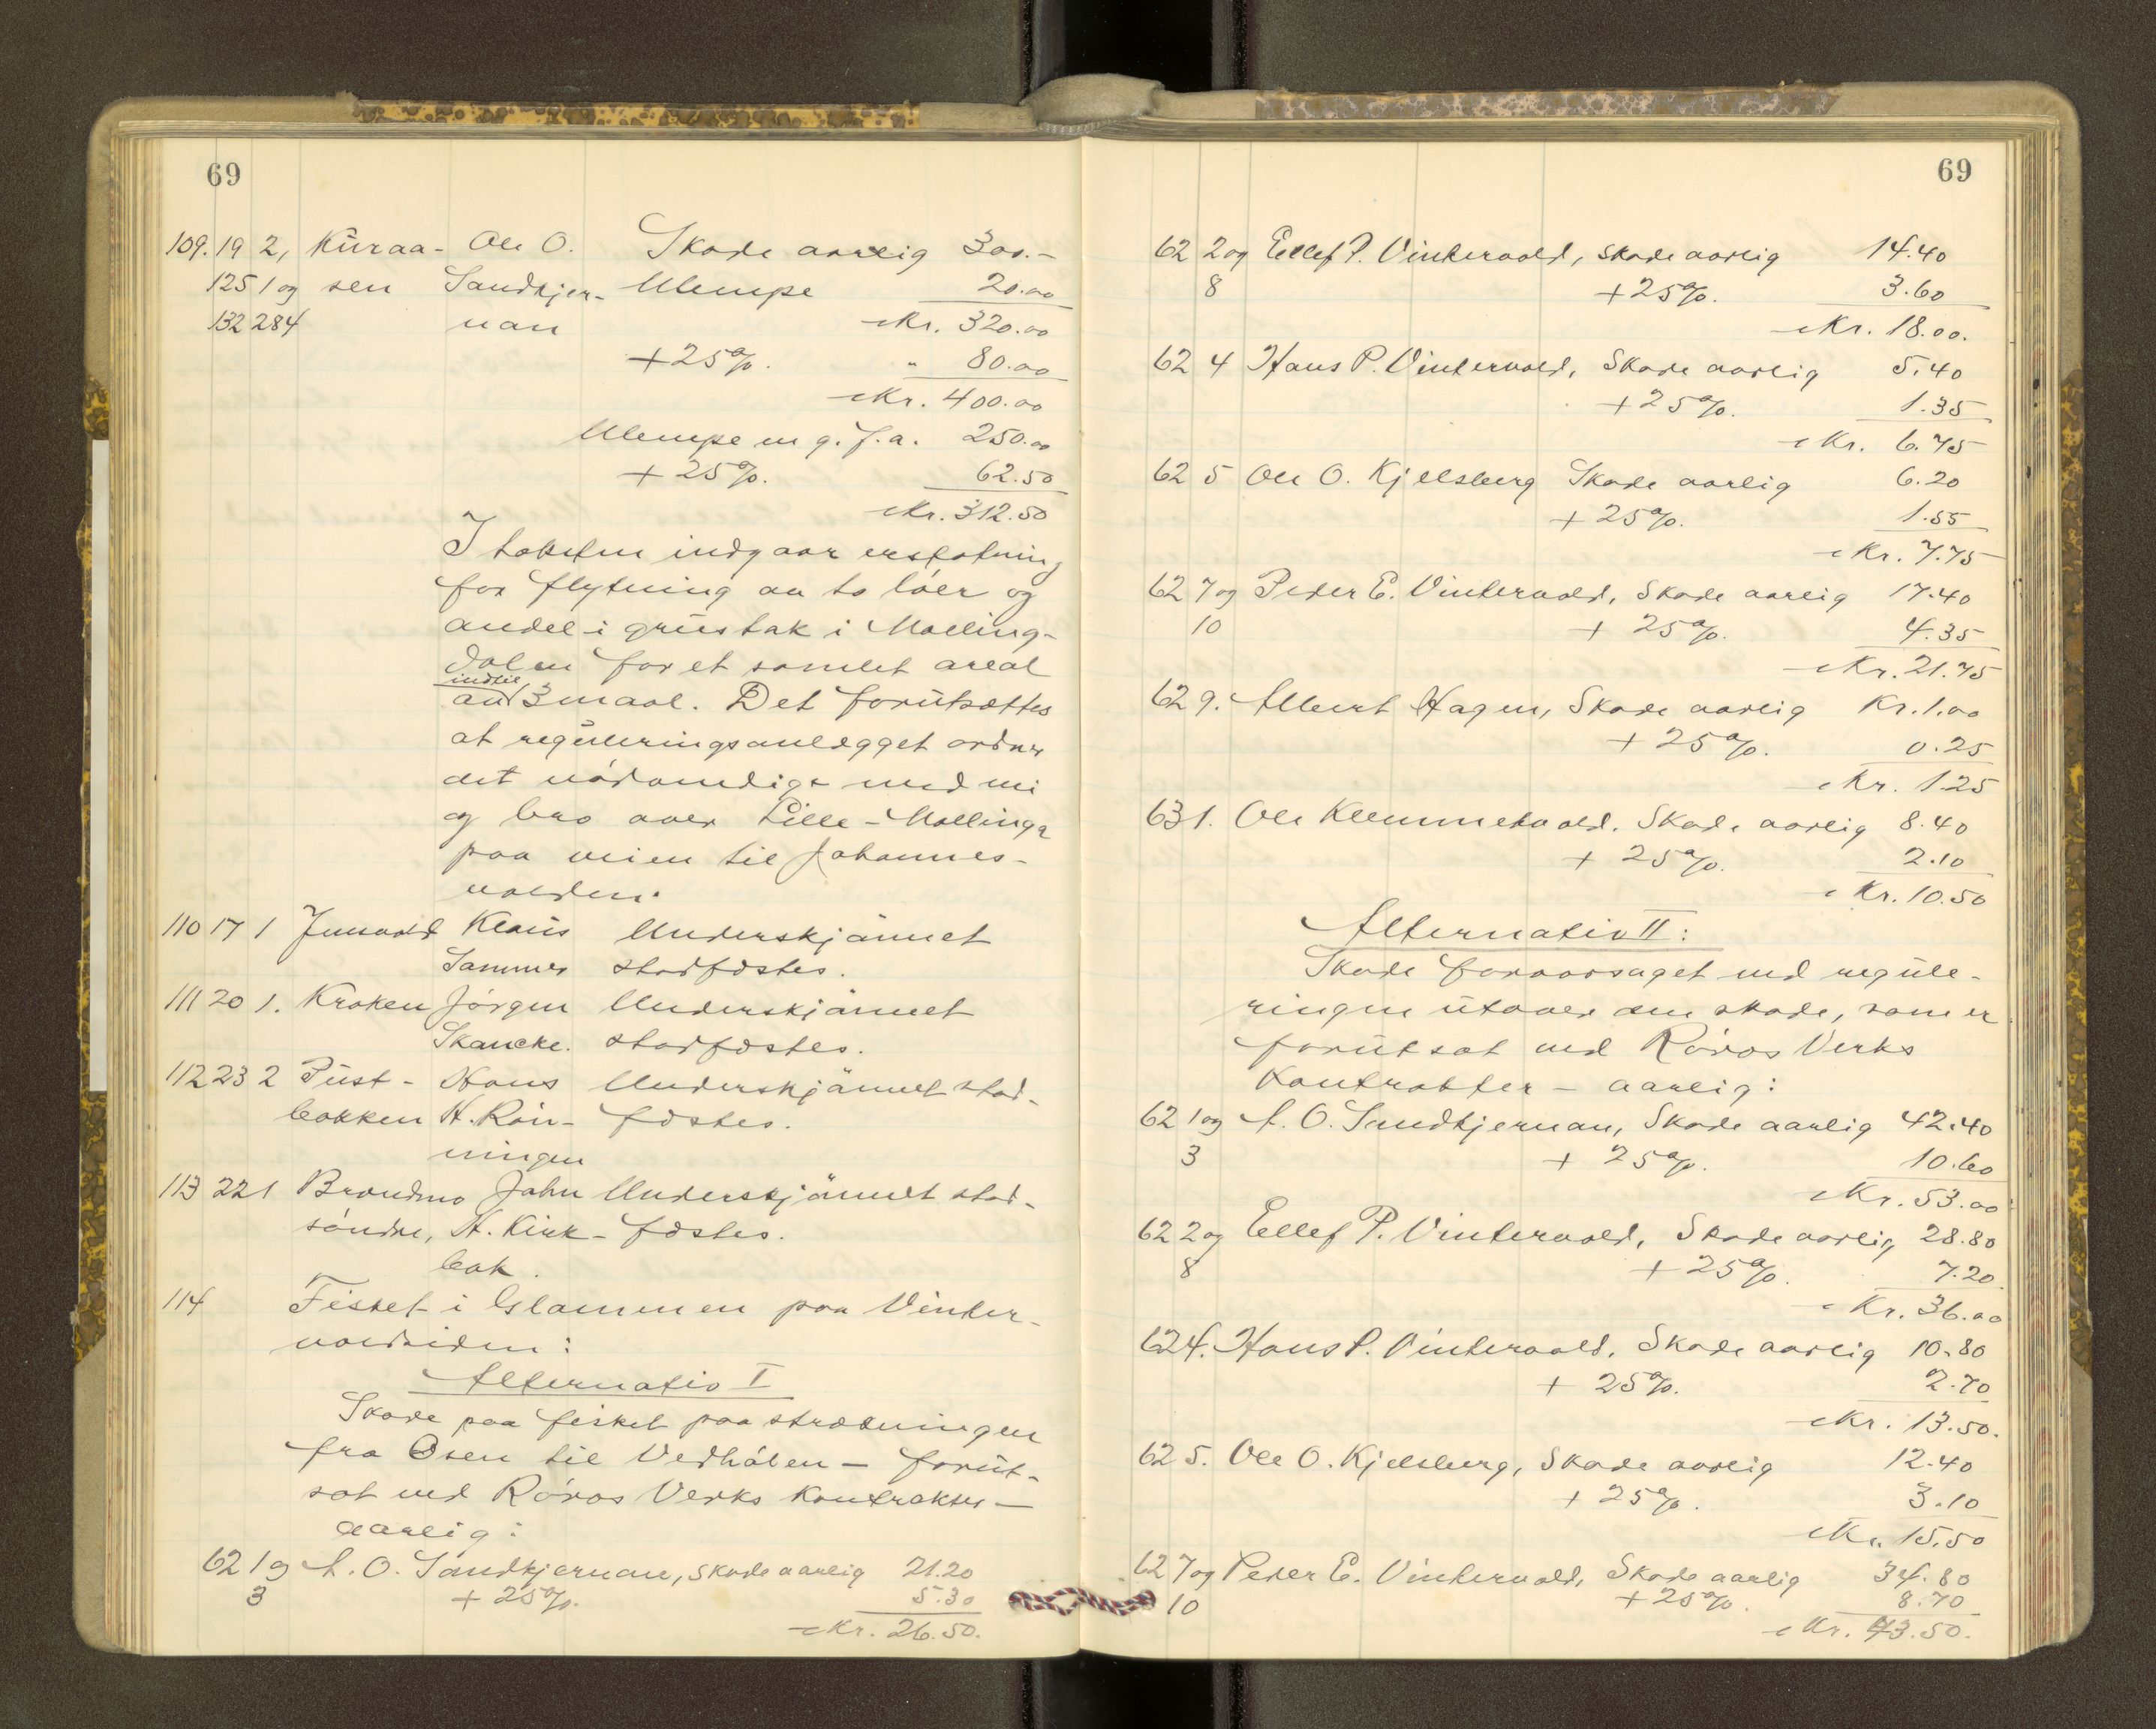 69
109. 19 2, Kuraa- Ole O. Skade aarlig 300.-
125 1 og sen Sandtjer- Ulempe 20.00
132 284 nan Kr. 320.00
+ 25%. " 80.00
Kr. 400.00
Ulempe m g. f. a. 250.00
+ 25%. 62.50
Kr. 312.50
I taksten indgaar erstatning
for flytning av to löer og
andel i grustak i Molling-
dalen for et samlet areal
indtil
av 3 maal. Det forutsættes
at reguleringsanlægget ordner
det nödvendige med vei
og bro over Lille-Mollinga
paa veien til Johannes-
volden.
110 17 1 Jensvold Klaus Underskjönnet
Sammer stadfæstes.
111 20 1. Kroken Jörgen Underskjönnet
Skancke. stadfæstes.
112 23 2 Pust- Hans Underskjönnet stad-
bakken H. Rön- fæstes.
ningen
113 22 1 Brandmo John Underskjönnet stad-
söndre, H. Kirk- fæstes.
bak.
114 Fisket i Glammen paa Vinter-
voldsiden:
Alternativ I
Skade paa fisket paa strækningen
fra Osen til Vedhölen - forut-
sat ved Röros Verks Kontrakter -
aarlig:
62 1 og A. O. Sandtjernan, Skade aarlig 21.20
3 + 25%. 5.30
Kr. 26.50.
69
62 2 og Ellef P. Vintervold, Skade aarlig 14.40
8 + 25%. 3.60
Kr. 18.00.
62 4 Hans P. Vintervold, Skade aarlig 5.40
+ 25%. 1.35
Kr. 6.75
62 5 Ole O. Kjelsberg Skade aarlig 6.20
+ 25%. 1.55
Kr. 7.75
62 7 og Peder E. Vintervold, Skade aarlig 17.40
10 + 25%. 4.35
Kr. 21.75
62 9. Albert Hagen, Skade aarlig Kr. 1.00
+ 25%. 0.25
Kr. 1.25
63 1. Ole Klemmetvold. Skade aarlig 8.40
+ 25%. 2.10
Kr. 10.50
Alternativ II:
Skade foraarsaget ved regule-
ringen utover den skade, som er
forutsat ved Röros Verks
Kontrakter - aarlig:
62 1 og A. O. Sandtjernan, Skade aarlig 42.40
3 + 25%. 10.60
Kr. 53.00
62 2 og Ellef P. Vintervold, Skade aarlig 28.80
8 + 25%. 7.20
Kr. 36.00
62 4. Hans P. Vintervold, Skade aarlig 10.80
+ 25%. 2.70
Kr. 13.50.
62 5. Ole O. Kjelsberg, Skade aarlig 12.40
+ 25%. 3.10
Kr. 15.50
62 7 og Peder E. Vintervold, Skade aarlig 34.80
10 + 25%. 8.70
Kr. 43.50.